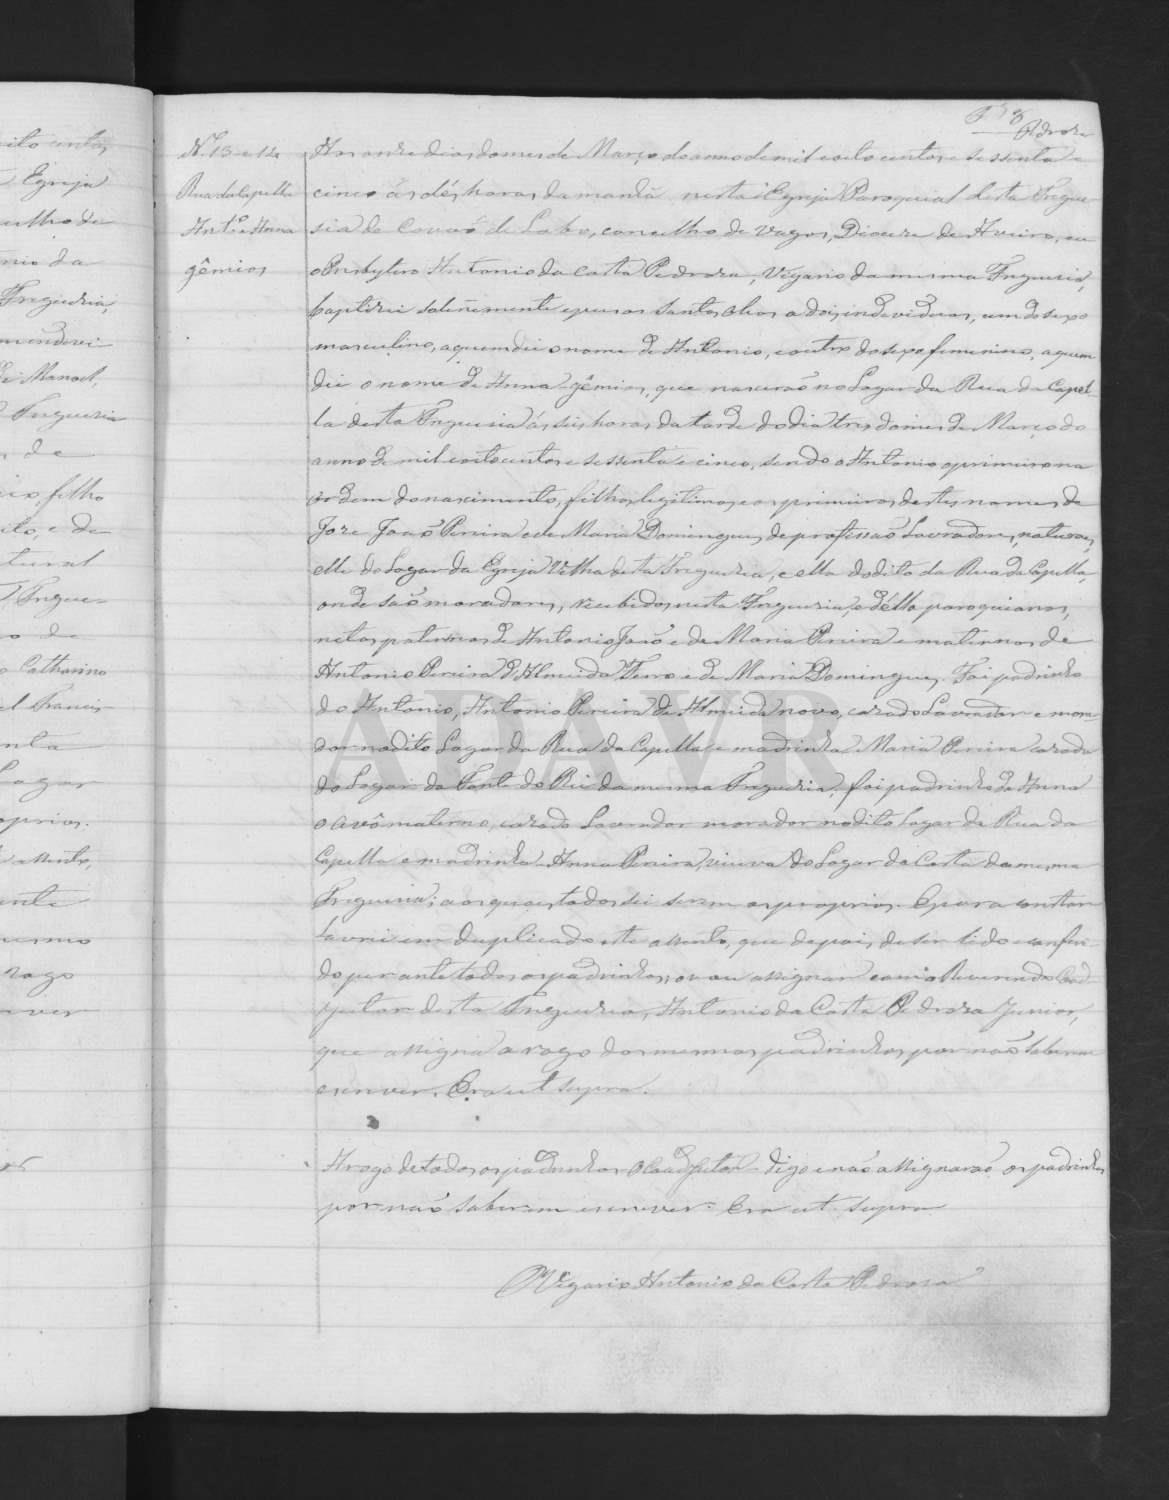 Pedroza
Nº 13 e 14
Rua da Capella
Antº e Anna
gêmios
Aos onze dias do mes de Março do anno de mil e oito centos e sessenta e
cinco ás dés horas da manhã nesta Egreja Paroquial desta Fregue-
sia de Covaõ do Lobo, concelho de Vagos, Diocese de Aveiro, eu
o Presbytero Antonio da Costa Pedroza, Vigario da mesma Freguesia,
baptizei solemnemente e puz os Santos Olios a dois individuos, um do sexo
masculino, a quem dei o nome de Antonio, e outro do sexo feminino, a quem
dei o nome de Anna - gêmios, que nasceraõ no Lugar da Rua da Capel-
la desta Freguesia ás seis horas da tarde do dia tres do mes de Março do
anno de mil e oitocentos e sessenta e cinco, sendo o Antonio o primeiro na
ordem do nascimento, filhos legitimos e os primeiros destes nomes de
Joze Joaõ Pereira e de Maria Domingues, de profissaõ Lavradores, naturaes,
elle do Lugar da Egreja Velha desta Freguezia, e ella do dito da Rua da Capella,
onde saõ moradores, recebidos nesta Freguezia, e délla paroquianos,
netos paternos de Antonio Joaõ e de Maria Pereira e maternos de
Antonio Pereira d'Almeida Ferro e de Maria Domingues. Foi padrinho
do Antonio, Antonio Pereira de Almeida novo, cazado Lavrador e mora-
dor no dito Lugar da Rua da Capella, e madrinha Maria Pereira cazada
do Lugar da Fonte do Rei da mesma Freguezia, foi padrinho da Anna
o avô materno, cazado Lavrador morador no dito Lugar da Rua da
Capella e madrinha Anna Pereira, viuva do Lugar da Costa da mesma
Freguesia; aos quaes todos sei serem os proprios. E para constar
lavrei em duplicado este assento, que depois de ser lido e conferi-
do perante todos os padrinhos, o vou assignar com o Reverendo Coad-
jutor desta Freguezia, Antonio da Costa Pedroza Junior,
que assigna a rogo dos mesmos padrinhos por naõ saberem
escrever. Era ut supra.
A rogo de todos os padrinhos o Coadjutor - digo e naõ assignaraõ os padrinhos
por naõ saberem escrever. Era ut supra
O Vigario Antonio da Costa Pedroza
ADAVR